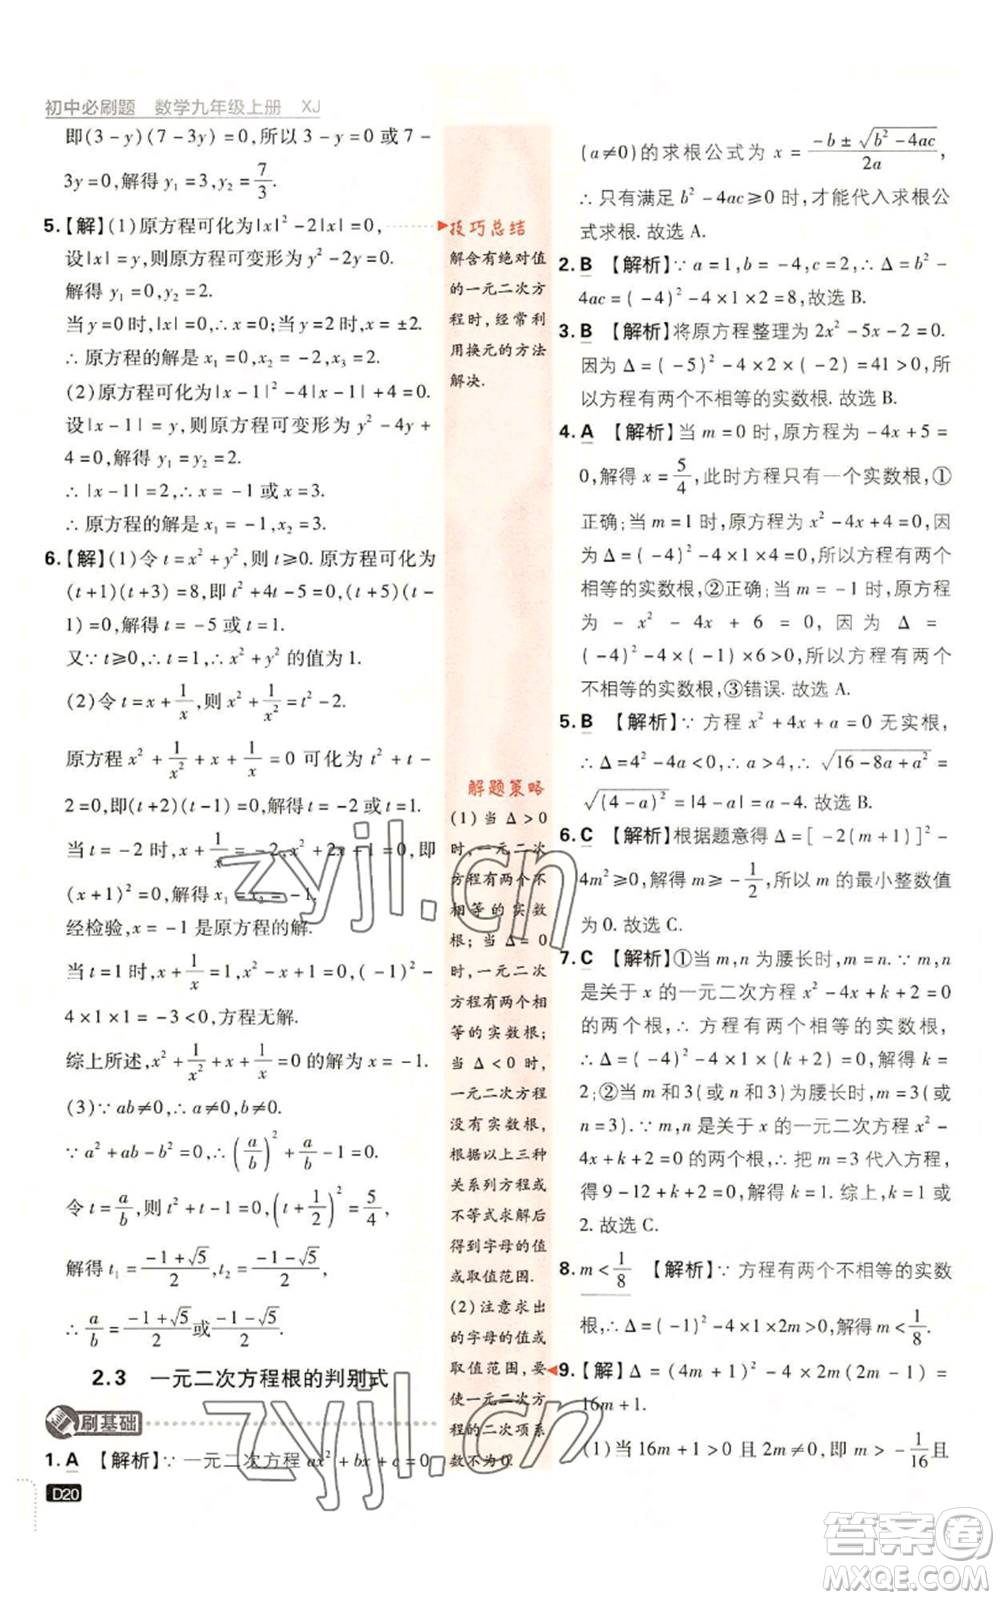 初中必刷题 数学九年级上册 XJ
即(3-y)(7-3y)=0,所以 3-y=0 或 7-
3y=0,解得 y₁=3,y₂=7/3.
5.【解】(1)原方程可化为|x|²-2|x|=0,
设|x|=y,原方程可变形为 y²-2y=0.
解得 y₁=0,y₂=2.
当 y=0 时,|x|=0,∴ x=0;
当 y=2 时,|x|=2,∴ x=±2.
∴ 原方程的解是 x₁=0,x₂=-2,x₃=2.
(2)原方程可化为|x-1|²-4|x-1|+4=0.
设|x-1|=y,原方程可变形为 y²-4y+
4=0,解得 y₁=y₂=2.
∴ |x-1|=2,∴ x=-1 或 x=3.
∴ 原方程的解是 x₁=-1,x₂=3.
6.【解】(1)令 t=x²+y²,则 t≥0. 原方程可化为
(t+1)(t+3)=8,即 t²+4t-5=0,(t+5)(t-
1)=0,解得 t=-5 或 t=1.
又∵ t≥0,∴ t=1,∴ x²+y² 的值为1.
(2)令 t=x+1/x,则 x²+1/x²=t²-2.
原方程 x²+1/x²+x+1/x=0 可化为 t²+t-2
=0,即(t+2)(t-1)=0,解得 t=-2 或 t=1.
当 t=-2 时,x+1/x=-2,x²+2x+1=0,即
(x+1)²=0,解得 x₁=x₂=-1.
经检验,x=-1 是原方程的解.
当 t=1 时,x+1/x=1,x²-x+1=0,(-1)²-
4×1×1=-3<0,方程无解.
综上所述,x²+1/x²+x+1/x=0 的解为 x=-1.
(3)∵ ab≠0,∴ a≠0,b≠0.
∵ a²+ab-b²=0,∴ (a/b)²+a/b-1=0.
令 t=a/b,则 t²+t-1=0,∴ (t+1/2)²=5/4,
解得 t₁=(-1+√5)/2,t₂=(-1-√5)/2.
∴ a/b=(-1+√5)/2或(-1-√5)/2.
2.3 一元二次方程根的判别式
刷基础
1. A 【解析】∵ 一元二次方程 ax²+bx+c=0
D20
技巧总结
解含有绝对值
的一元二次方
程时,经常利
用换元的方法
解决.
解题策略
(1)当 Δ>0
时,一元二次
方程有两个不
相等的实数
根;当 Δ=0
时,一元二次
方程有两个相
等的实数根;
当 Δ<0 时,
一元二次方程
没有实数根,
根据以上三种
关系列方程或
不等式求解后
得到字母的值
或取值范围.
(2)注意求出
的字母的值或
取值范围,要
使一元二次方
程的二次项系
数不为0.
(a≠0)的求根公式为 x=(-b±√(b²-4ac))/2a,
∴ 只有满足 b²-4ac≥0 时,才能代入求根公
式求根. 故选 A.
2. B 【解析】∵ a=1,b=-4,c=2,∴ Δ=b²-
4ac=(-4)²-4×1×2=8,故选 B.
3. B 【解析】将原方程整理为 2x²-5x-2=0.
因为 Δ=(-5)²-4×2×(-2)=41>0,所
以方程有两个不相等的实数根. 故选 B.
4. A 【解析】当 m=0 时,原方程为 -4x+5=
0,解得 x=5/4,此时方程只有一个实数根,①
正确;当 m=1 时,原方程为 x²-4x+4=0,因
为 Δ=(-4)²-4×1×4=0,所以方程有两个
相等的实数根,②正确;当 m=-1 时,原方程
为 -x²-4x+6=0,因为 Δ=
(-4)²-4×(-1)×6>0,所以方程有两个
不相等的实数根,③错误. 故选 A.
5. B 【解析】∵ 方程 x²+4x+a=0 无实根,
∴ Δ=4²-4a<0,∴ a>4,∴ √(16-8a+a²)=
√((4-a)²)=|4-a|=a-4. 故选 B.
6. C 【解析】根据题意得 Δ=[-2(m+1)]²-
4m²≥0,解得 m≥-1/2,所以 m 的最小整数值
为0. 故选 C.
7. C 【解析】①当 m,n 为腰长时,m=n. ∵ m,n
是关于 x 的一元二次方程 x²-4x+k+2=0
的两个根,∴ 方程有两个相等的实数根,
∴ Δ=(-4)²-4×1×(k+2)=0,解得 k=
2;②当 m 和 3(或 n 和 3)为腰长时,m=3(或
n=3). ∵ m,n 是关于 x 的一元二次方程 x²-
4x+k+2=0 的两个根,∴ 把 3 代入方程,
得 9-12+k+2=0,解得 k=1. 综上,k=1 或
2. 故选 C.
8. m<1/8 【解析】∵ 方程有两个不相等的实数
根,∴ Δ=(-1)²-4×1×2m>0,∴ m<1/8.
9.【解】Δ=(4m+1)²-4×2m(2m-1)=
16m+1.
(1)当 16m+1>0 且 2m≠0,即 m>-1/16且
zyjl.cn
zyjl.cn
答案圈
MXQE.COM